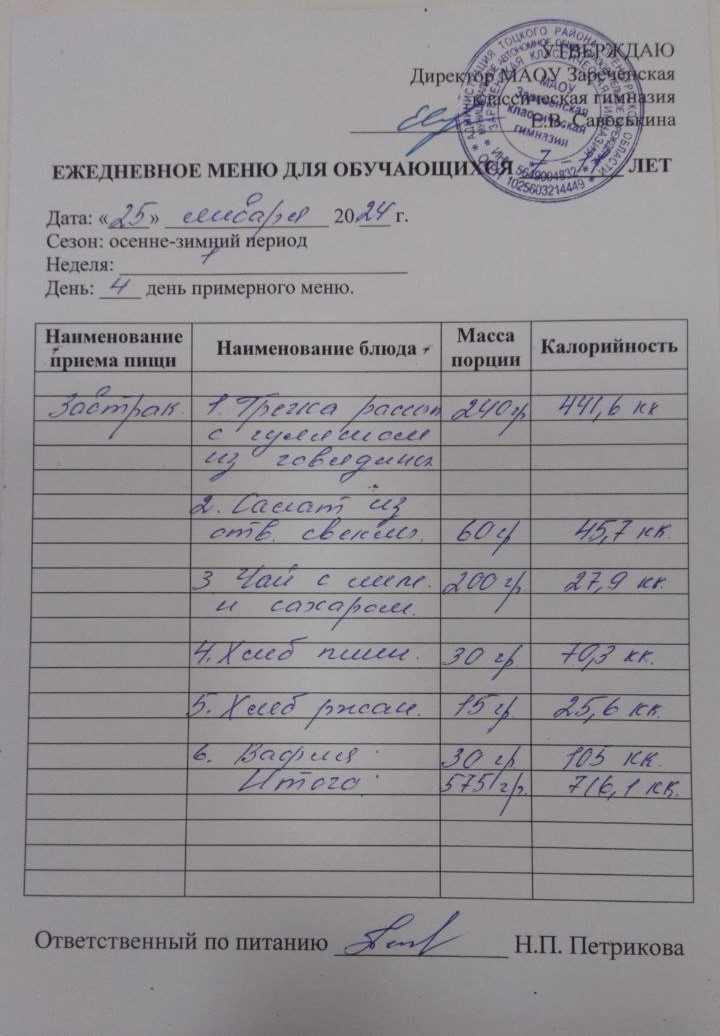 УТВЕРЖДАЮ
Директор МАОУ Зареченская
классическая гимназия
Е.В. Савоськина
МАОУ Зареченская классическая гимназия
5649004832
1025603214449
ЕЖЕДНЕВНОЕ МЕНЮ ДЛЯ ОБУЧАЮЩИХСЯ 7 - ЛЕТ
Дата: «25» января 2024 г.
Сезон: осенне-зимний период
Неделя: 1
День: 4 день примерного меню.
Наименование приема пищи Наименование блюда Масса порции Калорийность
Завтрак 1. Гречка рассып 240 гр 441,6 кк
с гуляшом
из говядины
2. Салат из
отв. свеклы. 60 гр 45,7 кк.
3 Чай с лим. 200 гр. 27,9 кк.
и сахаром.
4. Хлеб пшен. 30 гр 70,3 кк.
5. Хлеб ржан. 15 гр. 25,6 кк.
6. Вафля 30 гр. 105 кк.
Итого: 575 гр. 716,1 кк.
Ответственный по питанию Н.П. Петрикова